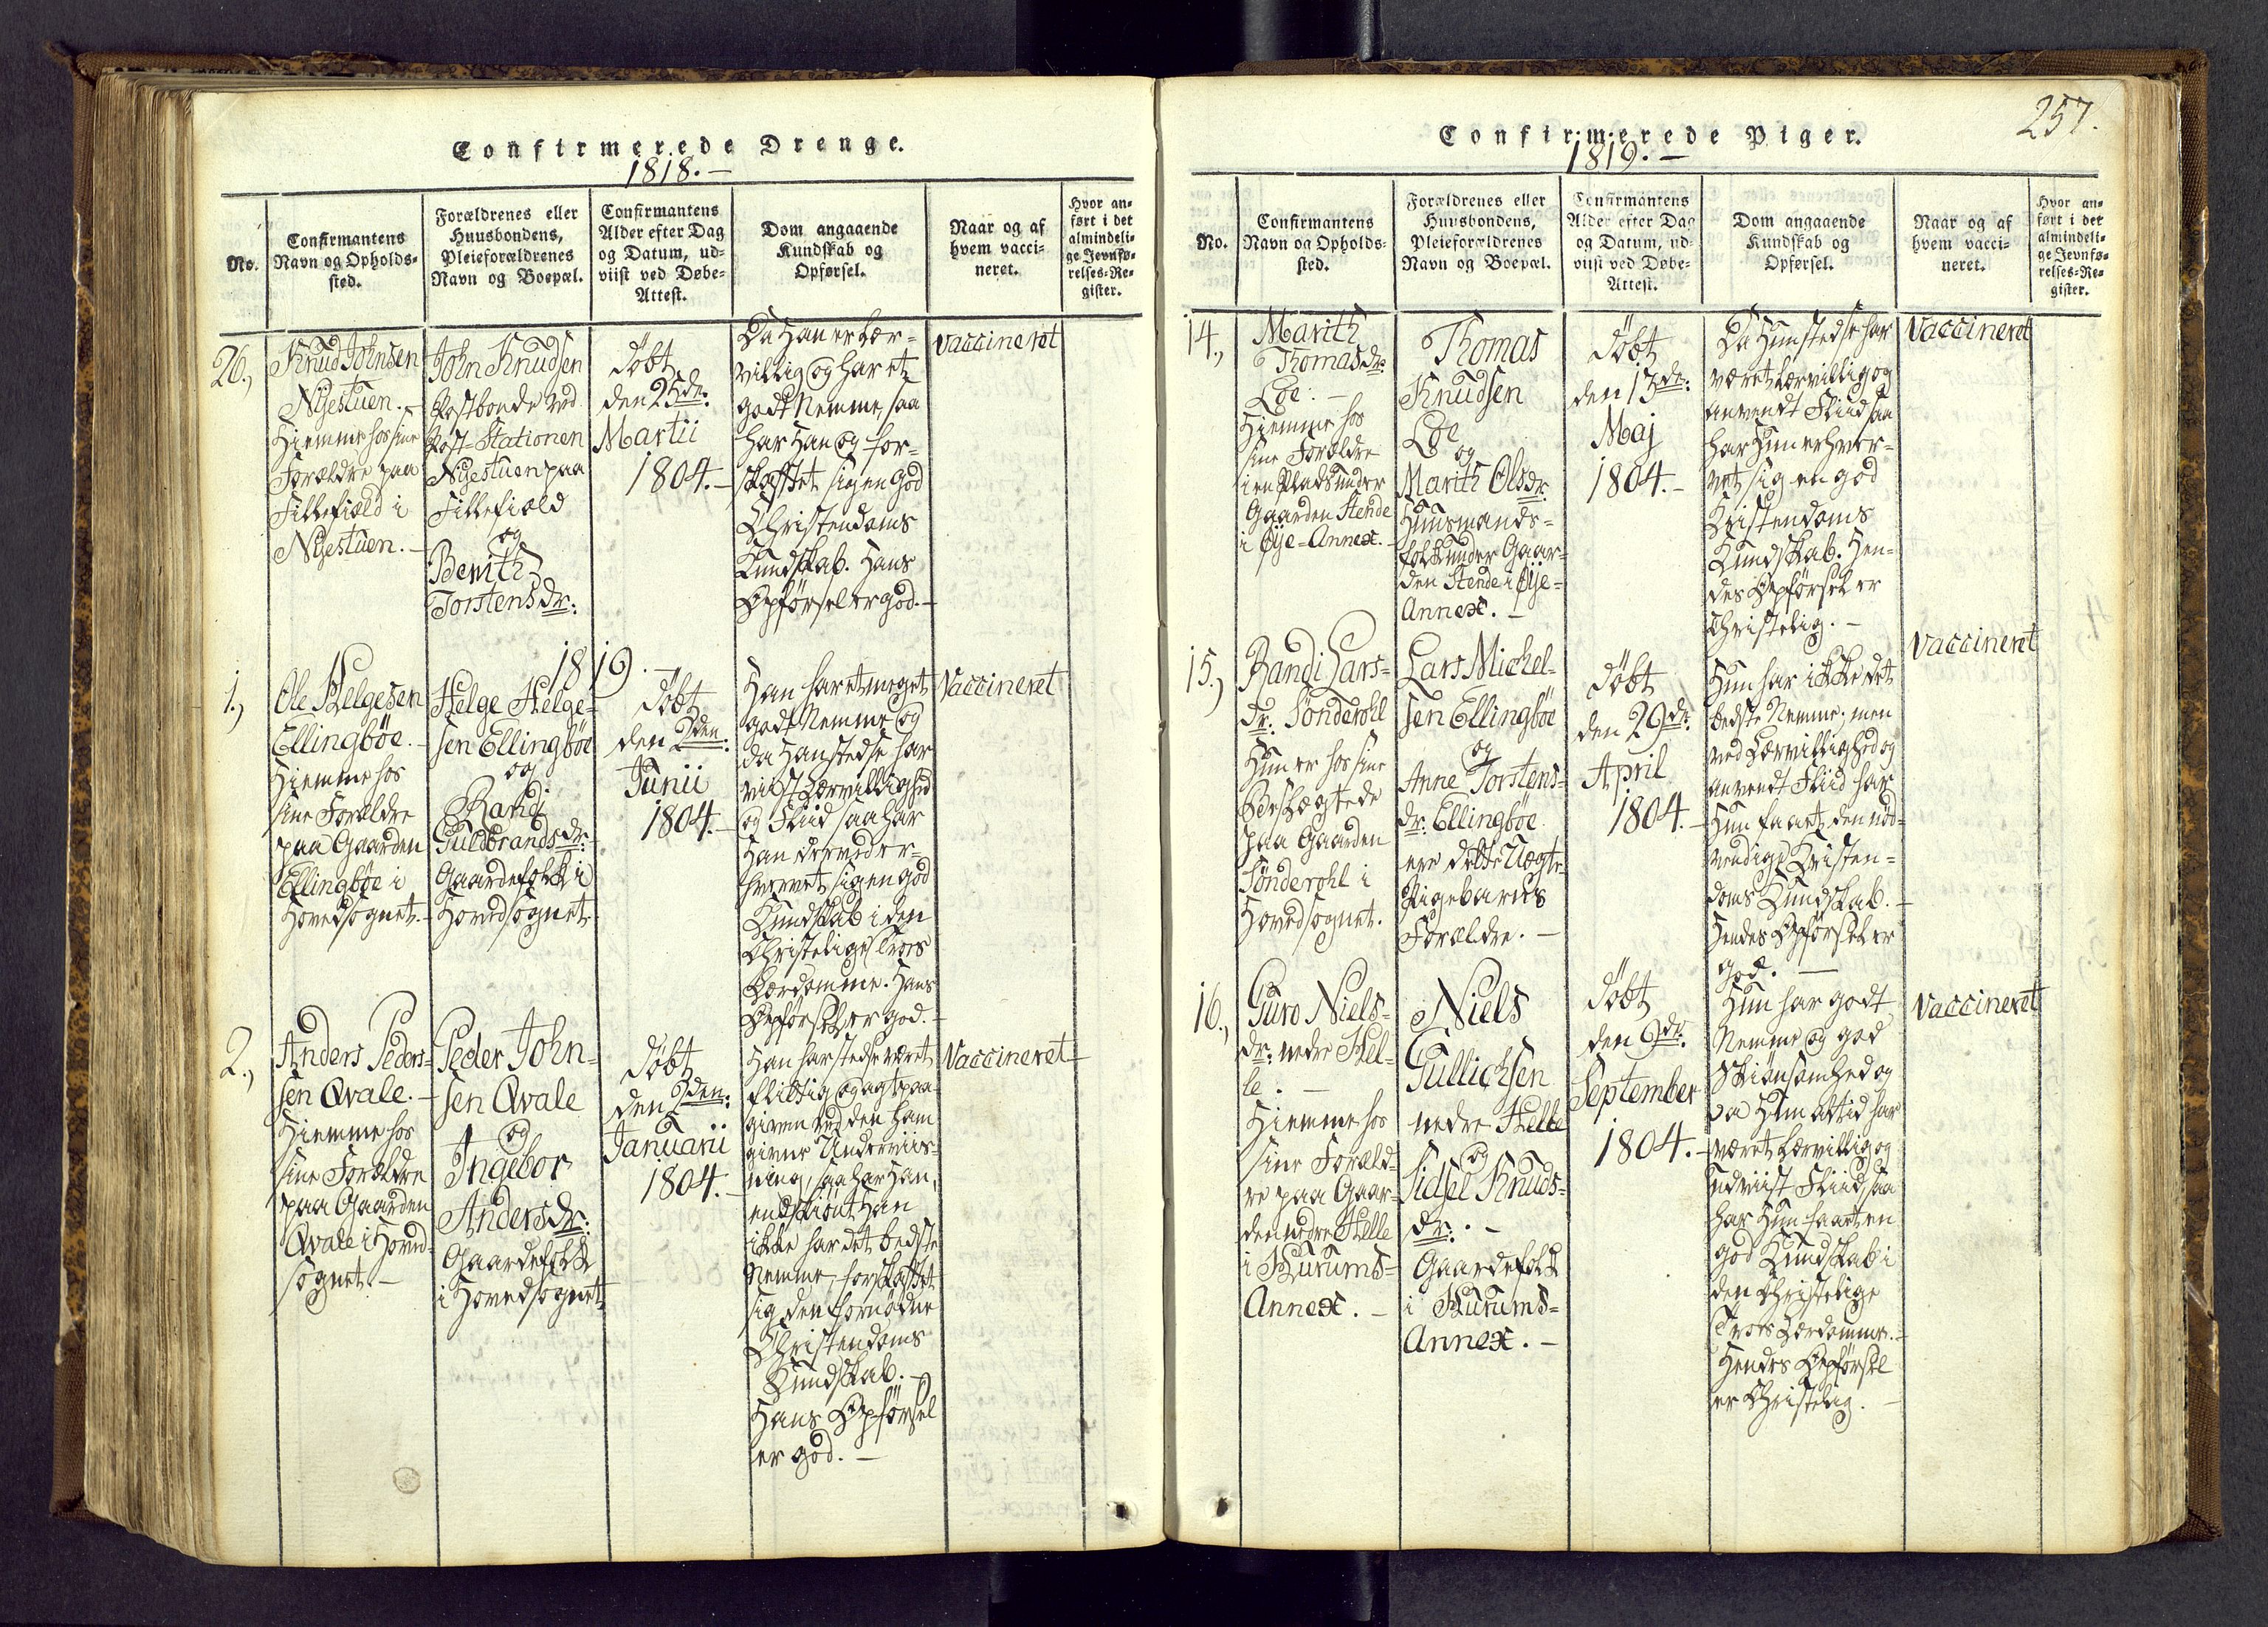 Confirmerede Drenge.
1818. —
No.
Confirmantens
Navn og Opholds-
sted.
Forældrenes eller
Huusbondens,
Pleieforældrenes
Navn og Boepæl.
Confirmantens
Alder efter Dag
og Datum, ud-
viist ved Døbe-
Attest.
Dom angaaende
Kundskab og
Opførsel.
Naar og af
hvem vacci-
neret.
Hvor an-
ført i det
almindeli-
ge Jevnfø-
relses-Re-
gister.
26.,
Knud Johnsen
Nÿestuen. —
Hiemme hos sine
Forældre paa
Fillefield i
Nÿestuen. —
John Knudsen
Postbonde ved
Post-Stationen
Nÿestuen paa
Fillefield
og
Berith
Torstensdr:
Döbt
den 25de:
Martii
1804. —
Da Han er lær-
villig og har et
godt Nemme, saa
har Han og for-
skaffet sig en god
Christendoms
Kundskab. Hans
Opførsel er god. —
Vaccineret
1819. —
1.,
Ole Helgesen
Ellingböe. —
Hiemme hos
sine Forældre
paa Gaarden
Ellingböe i
Hovedsognet. —
Helge Helge-
sen Ellingböe
og
Randi
Guldbrandsdr:
Gaardefolk i
Hovedsognet.
Döbt
den 2den:
Junii
1804. —
Han har et meget
godt Nemme og
da Han stedse har
viist Lærvillighed
og Fliid saa har
Han derved er-
hvervet sig en god
Kundskab i den
Christelige Troes
Lærdomme. Hans
Opførsel er god. —
Vaccineret
2.,
Anders Peders-
sen Qvale. —
Hiemme hos
sine Forældre
paa Gaarden
Qvale i Hoved-
sognet. —
Peder John-
sen Qvale
og
Ingebor
Andersdr:
Gaardefolk
i Hovedsognet.
Döbt
den 2den:
Januarii
1804. —
Han har stedse været
flittig og agtpaa-
given ved den Ham
givne Underviis-
ning, saa har Han,
endskiönt Han
ikke har det bedste
Nemme, forskaffet
sig den fornödne
Christendoms
Kundskab. —
Hans Opförsel
er god. —
Vaccineret
257.
Confirmerede Piger.
1819. —
No.
Confirmantens
Navn og Opholds-
sted.
Forældrenes eller
Huusbondens,
Pleieforældrenes
Navn og Boepæl.
Confirmantens
Alder efter Dag
og Datum, ud-
viist ved Døbe-
Attest.
Dom angaaende
Kundskab og
Opførsel.
Naar og af
hvem vacci-
neret.
Hvor an-
ført i det
almindeli-
ge Jevnfø-
relses-Re-
gister.
14.,
Marith
Thomasdr:
Löe. —
Hiemme hos
sine Forældre
i en Plads under
Gaarden Stende
i Öÿe-Annex. —
Thomas
Knudsen
Löe
og
Marith Olsdr:
Huusmands-
folk under Gaar-
den Stende i Öÿe-
Annex. —
Döbt
den 13de:
Maj
1804. —
Da Hun stedse har
været lærvillig og
anvendt Fliid saa
har Hun erhver-
vet sig en god
Kristendoms
Kundskab. Hen-
des Opförsel er
Christelig. —
Vaccineret
15.,
Randi Lars-
dr: Sönderohl
Hun er hos sine
Beslægtede
paa Gaarden
Sönderohl i
Hovedsognet.
Lars Michel-
sen Ellingböe
og
Anne Torstens-
dr: Ellingböe
ere dette Uægte
Pigebarns
Forældre. —
Döbt
den 29de:
April
1804. —
Hun har ikke det
bedste Nemme; men
ved Lærvillighed og
anvendt Fliid har
Hun faaet den nöd-
vendige Kristen-
doms Kundskab. —
Hendes Opførsel er
god. —
Vaccineret
16.,
Guro Niels-
dr: nedre Hel-
le. —
Hiemme hos
sine Foræld-
re paa Gaar-
den nedre Helle
i Hurums-
Annex. —
Niels
Gullichsen
nedre Helle
og
Sidsel Knuds-
dr: —
Gaardefolk
i Hurums-
Annex. —
Döbt
den 9de:
September
1804. —
Hun har godt
Nemme og god
Skiönsomhed og
da Hun altid har
været lærvillig og
udviist Fliid, saa
har Hun faaet en
god Kundskab i
den Christelige
Troes Lærdomme. —
Hendes Opførsel
er Christelig. —
Vaccineret